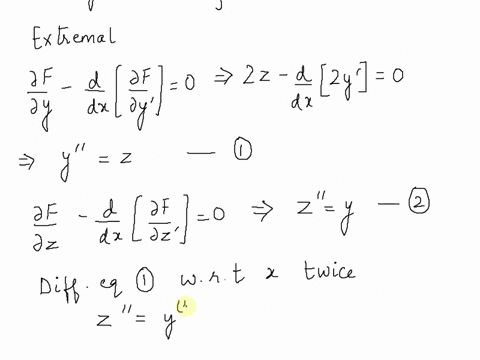 Extremal
∂F/∂y - d/dx [∂F/∂y'] = 0 ⇒ 2z - d/dx [2y'] = 0
⇒ y'' = z — ①
∂F/∂z - d/dx [∂F/∂z'] = 0 ⇒ z'' = y — ②
Diff. eq ① w.r.t x twice
z'' = y